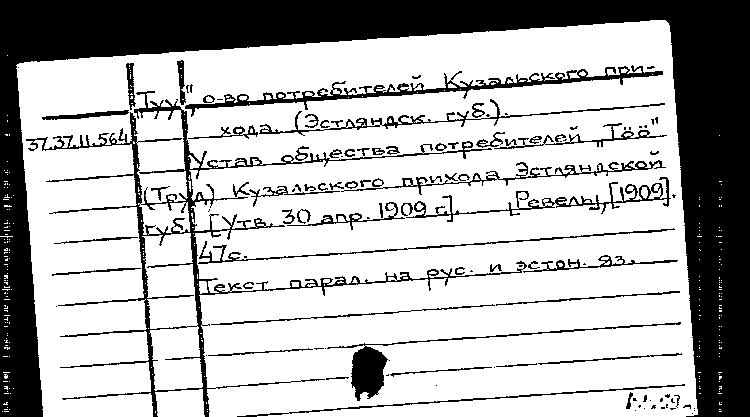 "Туу", о-во потребителей Кузальского при-
хода. (Эстляндск. губ.).
37.37.11.564
Устав общества потребителей "Töö"
(Труд) Кузальского прихода, Эстляндской
губ. [Утв. 30 апр. 1909 г.]. [Ревель], [1909].
47с.
Текст парал. на рус. и эстон. яз.